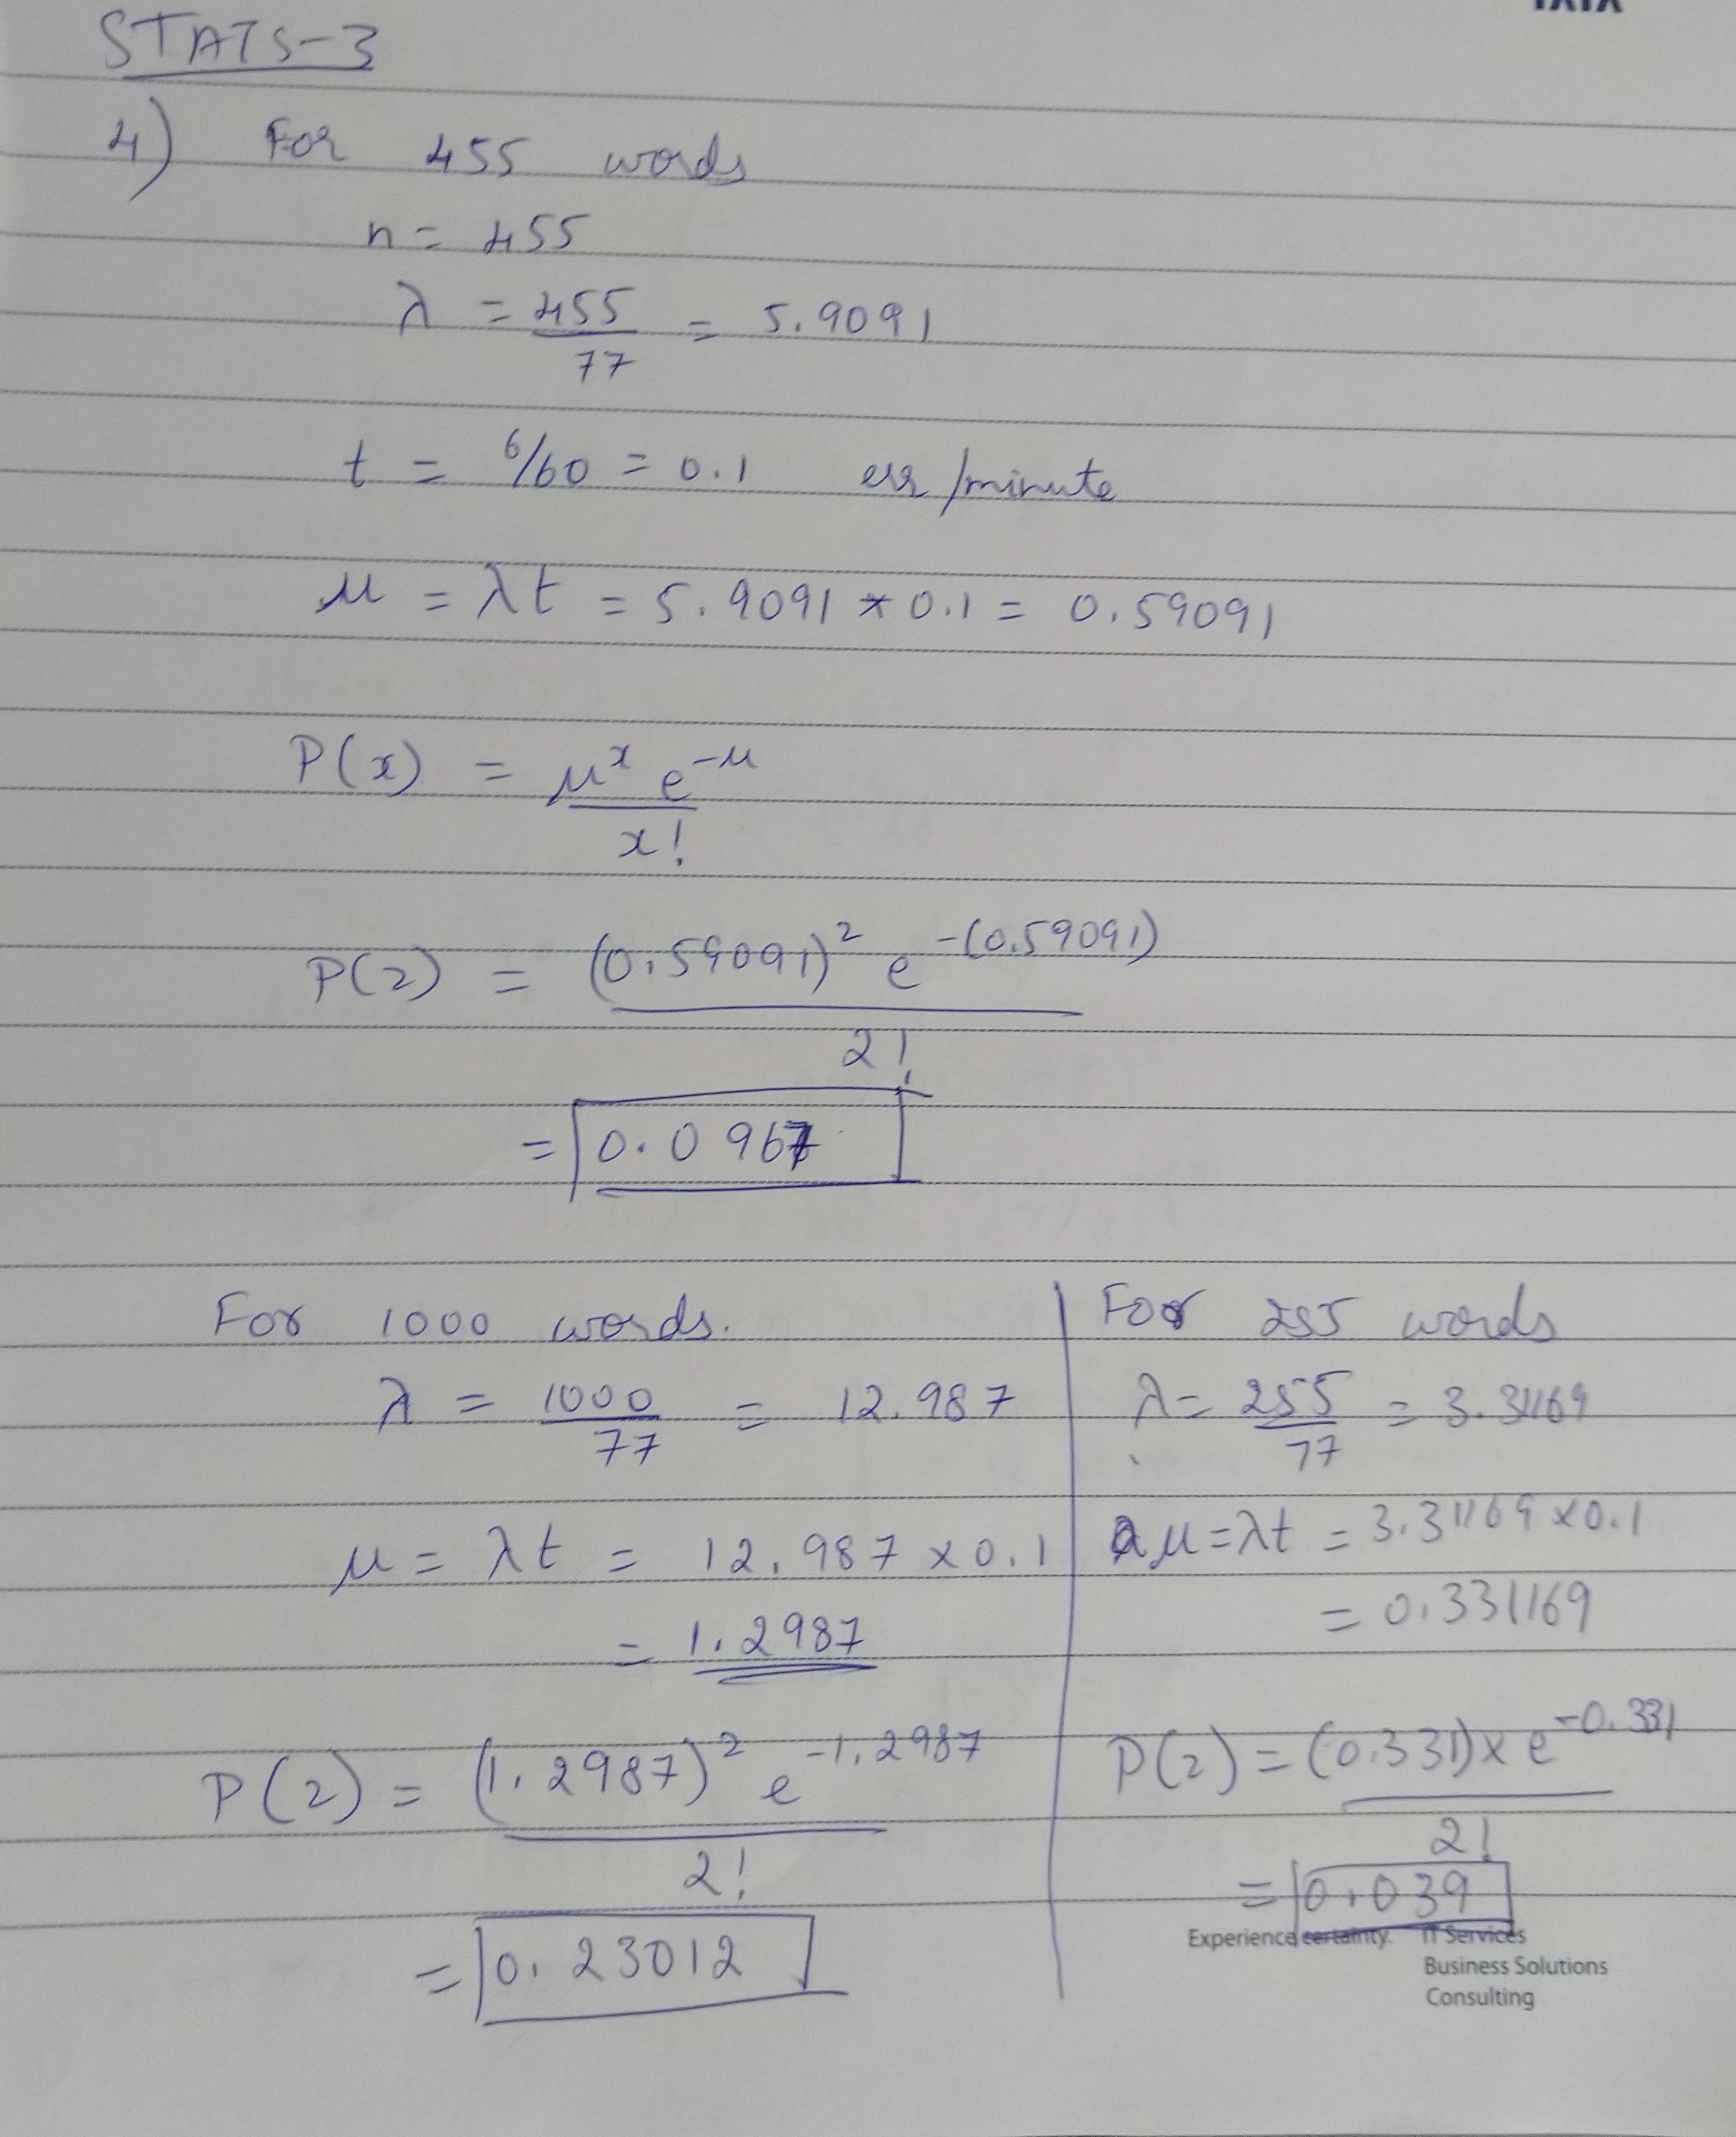 STATS-3
4) For 455 words
n = 455
λ = 455/77 = 5.9091
t = 6/60 = 0.1 err/minute
μ = λt = 5.9091 * 0.1 = 0.59091
P(x) = μ^x e^-μ / x!
P(2) = (0.59091)^2 e^-(0.59091) / 2!
= 0.0967
For 1000 words.
λ = 1000/77 = 12.987
μ = λt = 12.987 × 0.1
= 1.2987
P(2) = (1.2987)^2 e^-1.2987 / 2!
= 0.23012
For 255 words
λ = 255/77 = 3.31169
μ = λt = 3.31169 × 0.1
= 0.331169
P(2) = (0.331) × e^-0.331 / 2!
= 0.039
Experience certainty. IT Services
Business Solutions
Consulting